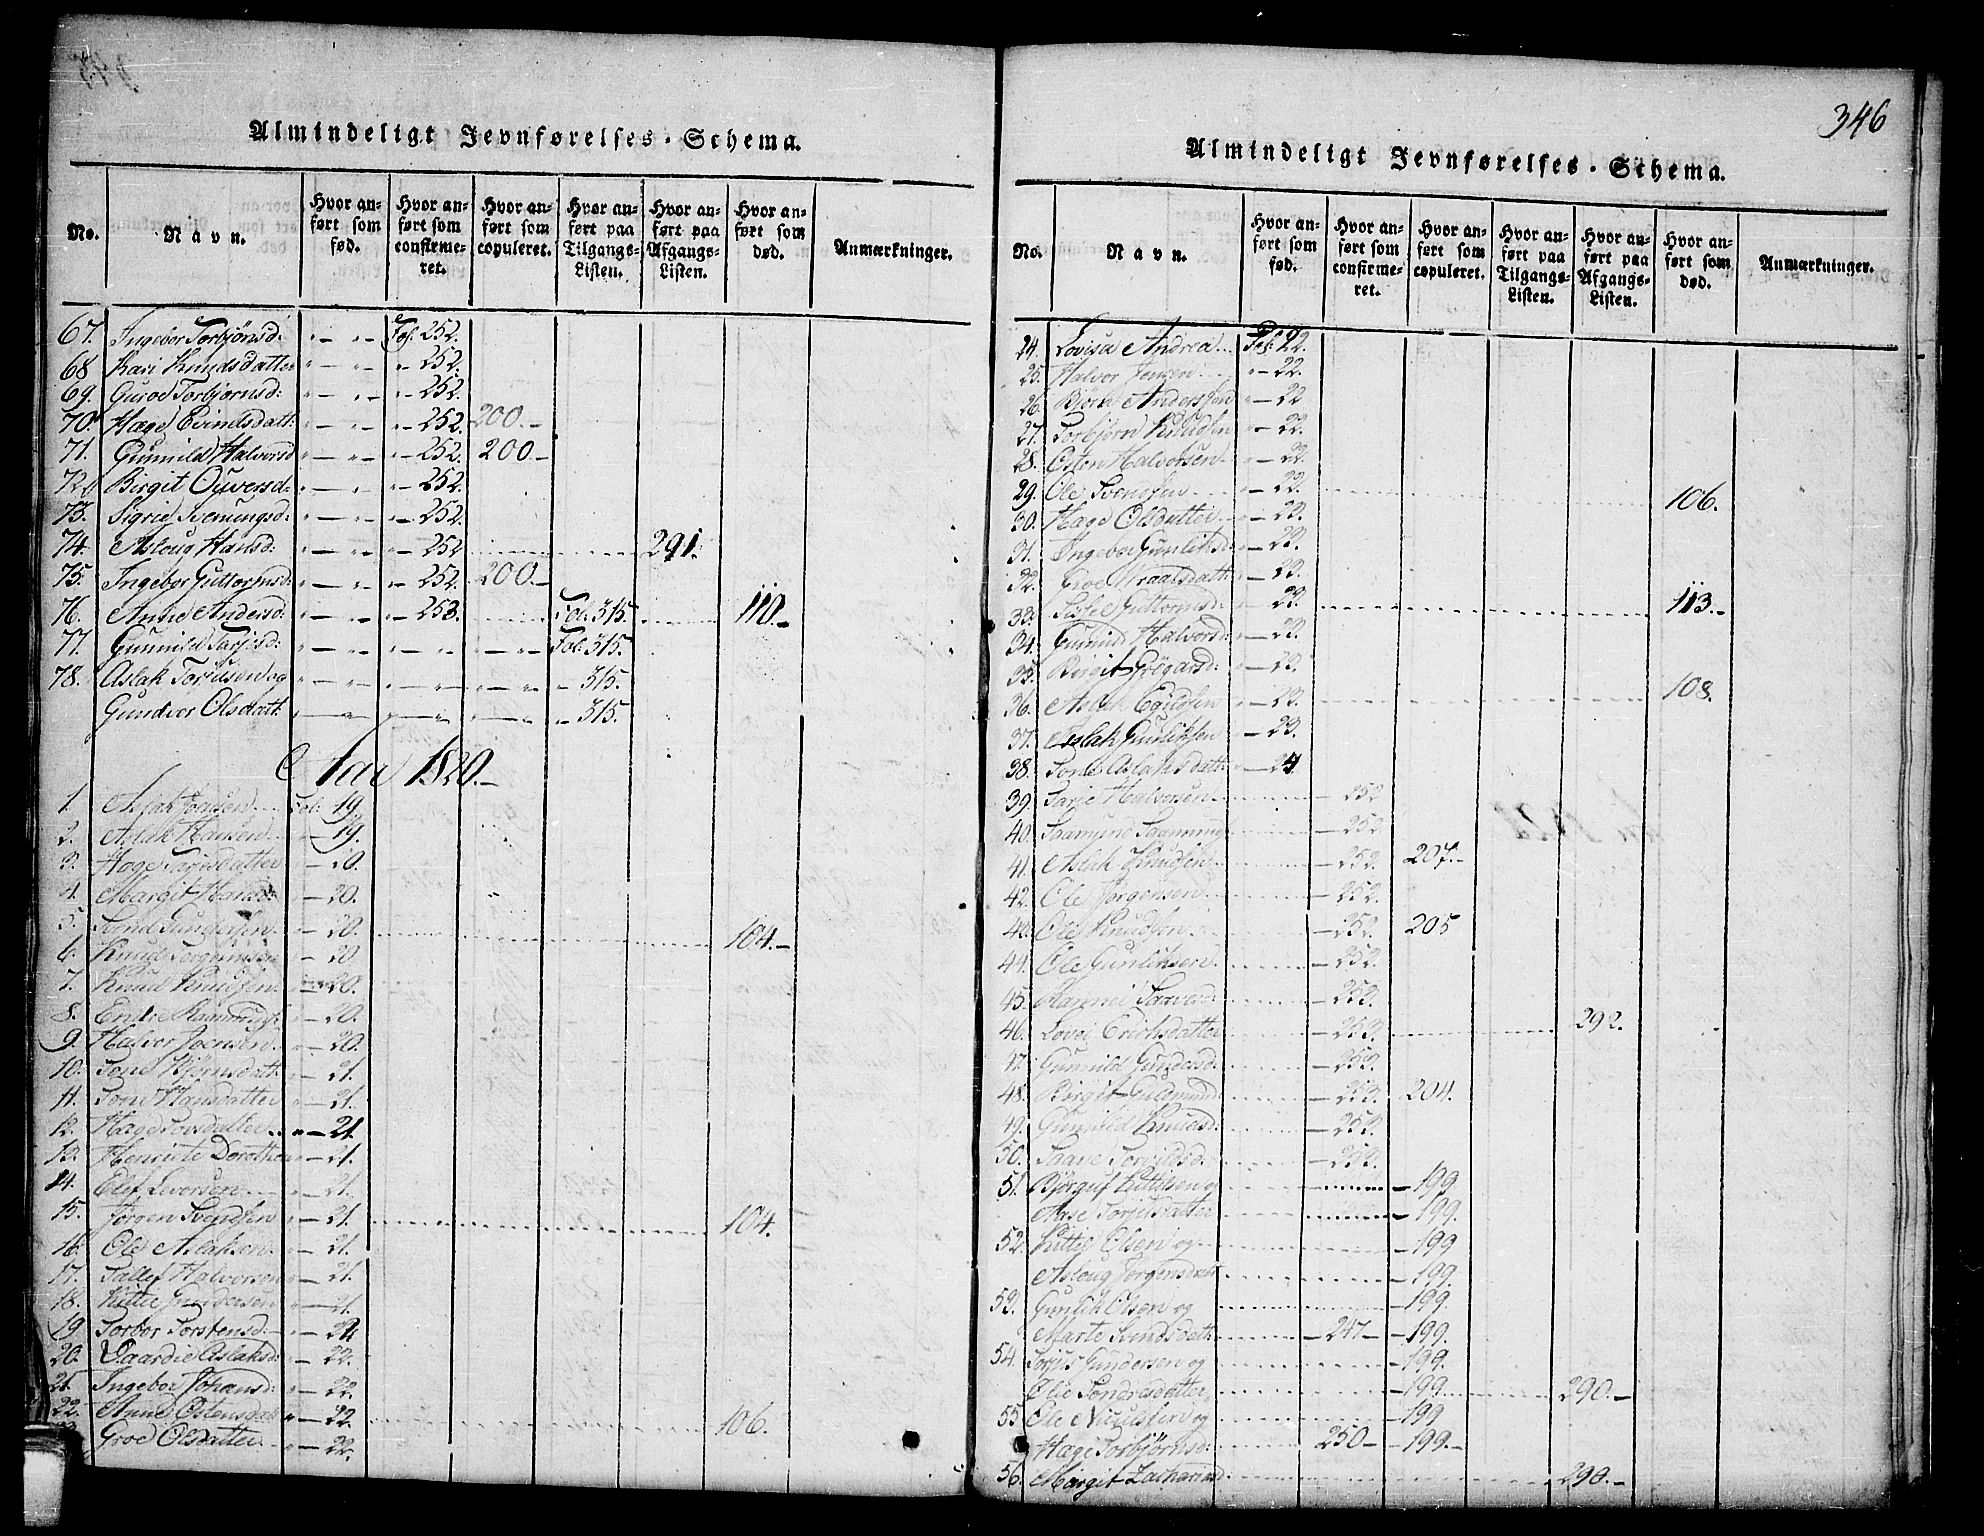 346
Almindeligt Jevnførelses-Schema.
No.
Navn.
Hvor anført som fød.
Hvor anført som confirmeret.
Hvor anført som copuleret.
Hvor anført paa Tilgangs-Listen.
Hvor anført paa Afgangs-Listen.
Hvor anført som død.
Anmærkninger.
67. Ingebor Torbjørnsd: " — " " — " Fol. 252.
68 Kari Knudsdatter " — " " — 252.
69. Guroe Torbjørnsd: " — " " — 252.
70. Hæge Evindsdatt: " — " " — 252. 200. —
71. Gunnild Halvorsd " — " " — 252. 200 —
72. Birgit Ouversd: " — " " — 252.
73. Sigrie Svenungsd: " — " " — 252.
74. Asloug Hansd: " — " " — 252 291.
75. Ingebor Guttormsd: " — " " — 252. 200. —
76. Anne Andersd: " — " " — 253. Fol: 315. 110. —
77. Gunnild Tarjesd: " — " " — " " — " Fol: 315.
78. Aslak Torjusen og " — " " — " " — " " 315.
Gunver Olsdatt: " — " " — " " — " " 315.
Aar 1820. —
1. Aslak Joensen Fol: 19.
2. Aslak Hansen " — 19.
3. Hæge Tarjesdatter — 20.
4. Margit Hansd: — 20.
5. Svend Gundersen — 20. 104. —
6. Knud — 20
7. Knud Knudsen — 20.
8. — 20.
9. Halvor Joensen " — 20.
10. Tone Bjørnsdatt: " — 21.
11. Tone Hansdatter " — 21.
12. Hæge datter " — 21
13. Henriete Dorothea " — 21.
14. Olef Levorsen " — 21.
15. Jørgen Svendsen " — 21. 104. —
16. Ole Aslaksen " — 21.
17. Tallef Halvorsen " — 21.
18. Kittil Gundersen " — 21.
19 Torbor Torstensd: " — 21
20. Vaardie Aslaksd: — 22.
21. Ingebor Johansd: " — 22.
22. Anne Ostensdatt " — 22. 106. —
Groe Olsdatter " — 22.
Almindeligt Jevnførelses-Schema.
No.
Navn.
Hvor anført som fød.
Hvor anført som confirmeret.
Hvor anført som copuleret.
Hvor anført paa Tilgangs-Listen.
Hvor anført paa Afgangs-Listen.
Hvor anført som død.
Anmærkninger.
24. Lovisa Andrea Fol: 22.
25. Halvor Jensen " — 22.
26. Bjørn Anderssen " — 22
27. Torbjørn Knudsen " — 22.
28. Osten Halvorsen " — 22.
29. Ole Svendsen " — 22. 106.
30. Hæge Olsdatter " — 23.
31. Ingebor Gunliksd: " — 23.
32. Groe Wraalsdatt: " — 23.
33. Guttormsd: " — 23. 113. —
34. Gunnild Halvorsd: " — 23.
35. Birgit Gregarsd: " — 23.
36. Aslak Egildsen " — 23. 108.
37. Aslak Gunliksen " — 23.
38. Tone Aslaksdatt: " — 24.
39. Tarje Halvorsen — 252
40. Saamund — 252
41. Aslak Knudsen — 252. 207. —
42. Ole Jørgensen — 252.
43. Ole Knudsen — 252. 205
44. Ole Gunliksen — 252.
45. — 253.
46. Lovei Eriksdatter — 253. 292.
47. Gunnild Gundersd: — 253.
48. Birgit Guldmund — 253. 204.
49. Gunnild Knudsd: — 253.
50. Saave — 253.
51. Bjørguf Kittilsen og — 199.
Aase Torjusdatter — 199.
52. Kittil Olsen og — 199
Asloug Jørgensdatt — 199.
53. Gunlik Olsen og — 199.
Marte Svendsdatt: — 247 — — 199.
54. Torjus Gundersen og — 199.
Olie Sondresdatter — 199 290. —
55. Ole og — 199
Hæge Torbjørnsd: 250 — — 199. —
56. Margit Zachariasd 290. —